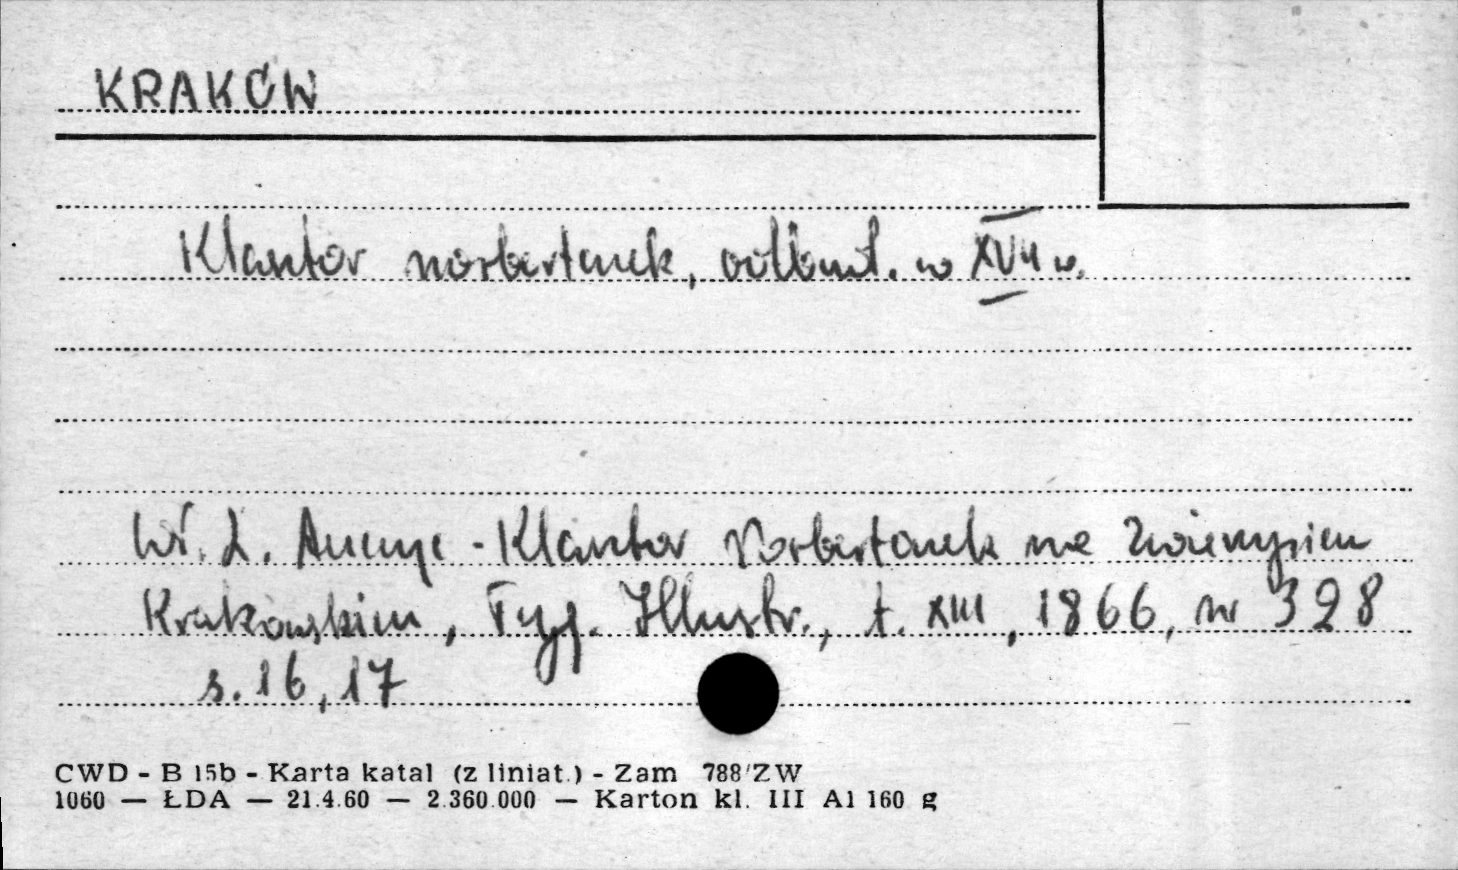 KRAKÓW
Klasztor norbertanek, odbud. w XVII w.
Wł. L. Anczyc - Klasztor Norbertanek na Zwierzyńcu
Krakowskim, Tyg. Illustr., t. XIII, 1866, nr 328
s. 16, 17
CWD - B 15b - Karta katal (z liniat.) - Zam 788/ZW
1060 — ŁDA — 21.4.60 — 2.360.000 — Karton kl. III A1 160 g